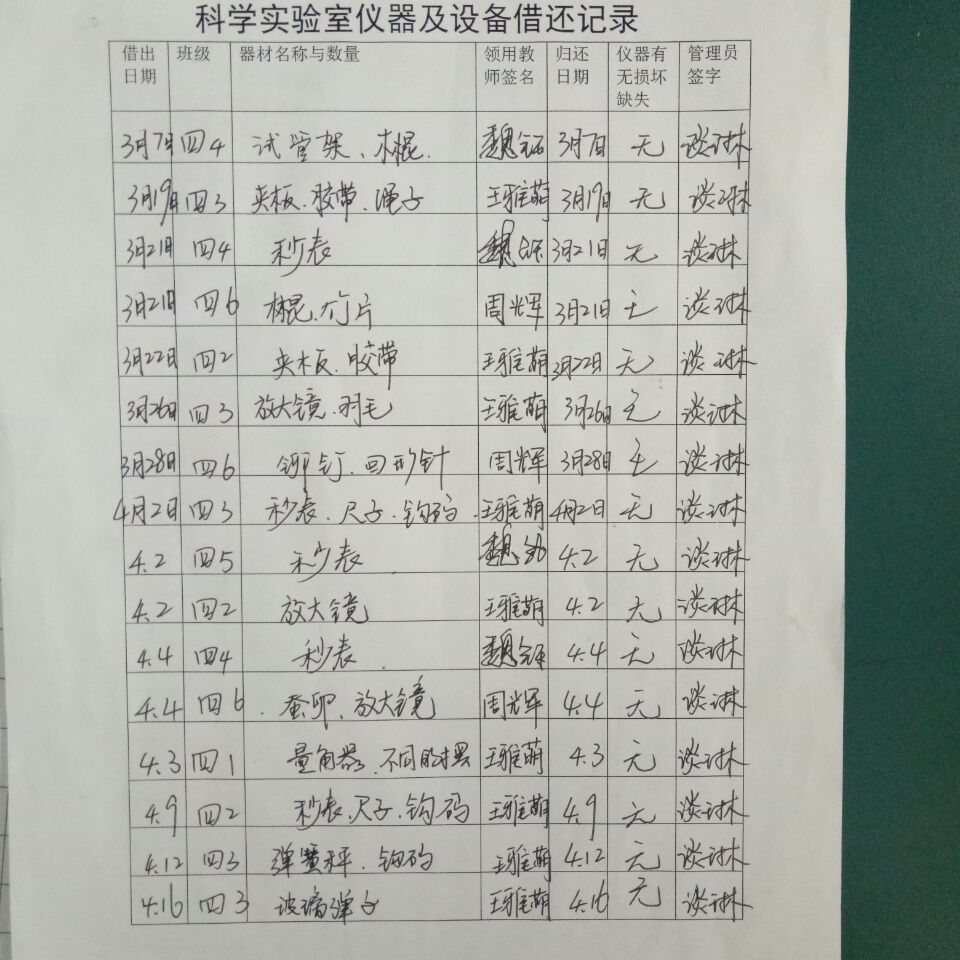 科学实验室仪器及设备借还记录
借出日期 班级 器材名称与数量 领用教师签名 归还日期 仪器有无损坏缺失 管理员签字
3月7日 四4 试管架、木棍. 魏 3月7日 无 谈琳
3月19日 四3 夹板、胶带、绳子 王雅萌 3月19日 无 谈琳
3月21日 四4 秒表 魏 3月21日 无 谈琳
3月21日 四6 木棍、竹片 周光辉 3月21日 无 谈琳
3月22日 四2 夹板、胶带 王雅萌 3月22日 无 谈琳
3月26日 四3 放大镜、羽毛 王雅萌 3月26日 无 谈琳
3月28日 四6 铆钉、回形针 周光辉 3月28日 无 谈琳
4月2日 四3 秒表、尺子、钩码 王雅萌 4月2日 无 谈琳
4.2 四5 秒表 魏 4.2 无 谈琳
4.2 四2 放大镜 王雅萌 4.2 无 谈琳
4.4 四4 秒表 魏 4.4 无 谈琳
4.4 四6 蚕卵、放大镜 周光辉 4.4 无 谈琳
4.3 四1 量角器、不同的摆 王雅萌 4.3 无 谈琳
4.9 四2 秒表、尺子、钩码 王雅萌 4.9 无 谈琳
4.12 四3 弹簧秤、钩码 王雅萌 4.12 无 谈琳
4.16 四3 玻璃弹子 王雅萌 4.16 无 谈琳